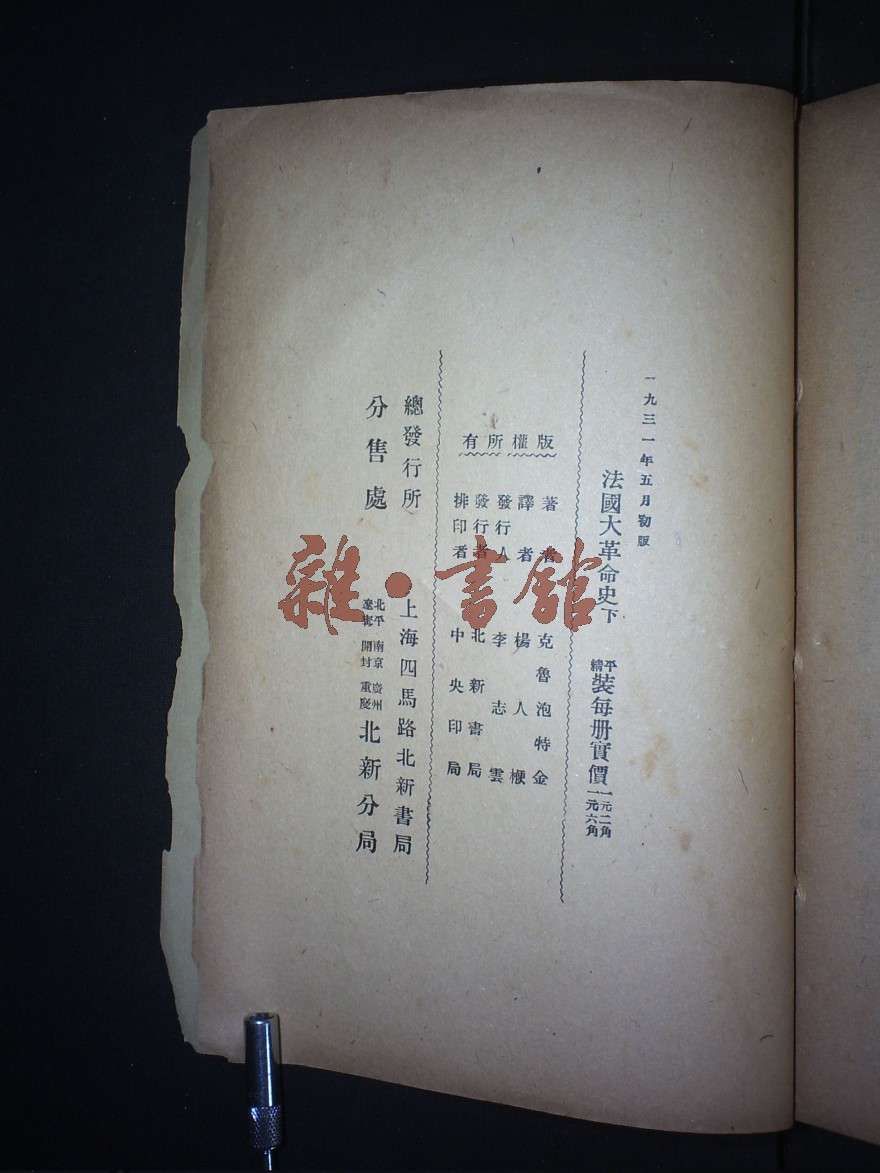 一九三一年五月初版
法國大革命史下 平精裝每册實價一元二角一元六角
版權所有
著者 克魯泡特金
譯者 楊人楩
發行人 李志雲
發行者 北新書局
排印者 中央印局
總發行所 上海四馬路北新書局
分售處 北平 南京 廣州 開封 重慶 北新分局
雜·書館